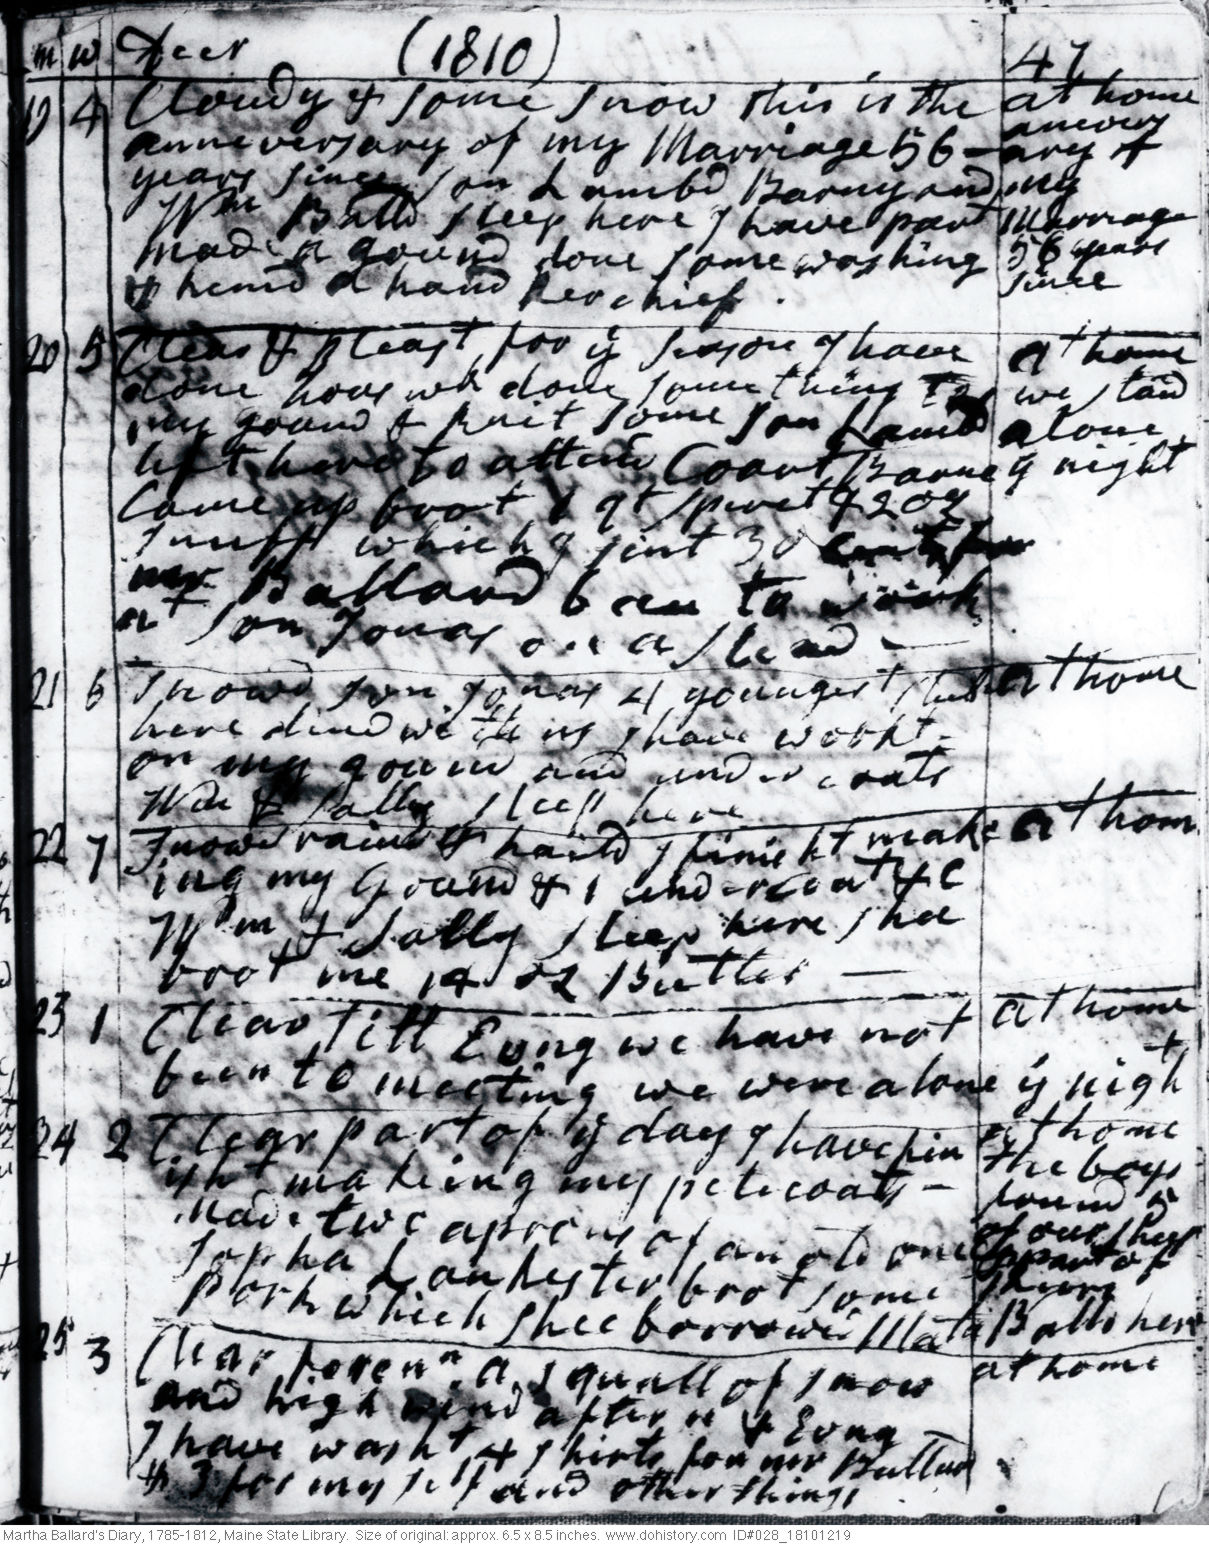 m w Decr (1810) 47
19 4 Cloudy & some snow this is the at home
anneversary of my Marriage 56 - annevers
years since son Lambd Barny and ary of
Wm Balld sleep here I have part my
made a gound done some washing Marriage
& hemd a hand kerchief. 56 years
since
20 5 Clear & pleast for ye season I have at home
done hous wk done some thing to we staid
my gound & knit some son Lambd alone
left here to attend Coart Barne ye night
Came up brot 1 qt spirett & 2 oz
snuff which I sent 30 Cents for
mr Ballard been to work
at son Jonas on a sled -
21 6 Snowd son Jonas 4 youngest at home
here dind with us I have workt -
on my gound and under coats
Wm & Sally sleep here
22 7 Snowd raind & haild I finisht make at home
ing my Gound & 1 undercoat &C
Wm & Sally sleep here shee
brot me 14 oz Butter -
23 1 Clear till Evng we have not at home
been to meeting we were alone ye night
24 2 Clear part of ye day I have fin at home
isht making my peticoats - the boys
Made two aprons of an old one found 5
Sopha Lankester brot some of our sheep
pork which shee borrowd a part of
Balld here
25 3 Clear foren n. a squall of snow at home
and high wind aftern & Evng
I have washt 4 shirts for mr Ballard
& 3 for my self and other things.
Martha Ballard's Diary, 1785-1812, Maine State Library. Size of original: approx. 6.5 x 8.5 inches. www.dohistory.com ID#028_18101219